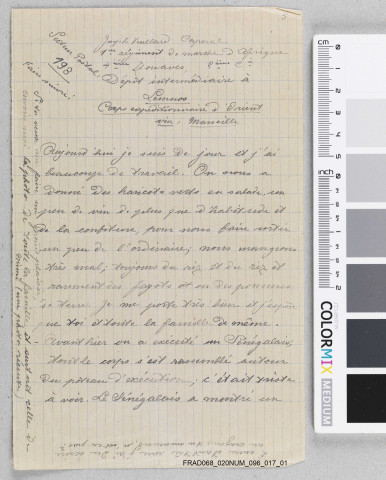 Secteur Postal
198
faire suivre!
Joseph Vuillard Caporal
1er régiment de marche d'Afrique
4ème Zouaves 8ème Cie
Dépôt intermédiaire à
Lemnos
Corps expéditionnaire d'Orient
via Marseille
Aujourd'hui je suis de jour et j'ai
beaucoup de travail. On nous a
donné des haricots verts en salade, un
peu de vin de plus que d'habitude et
de la confiture, pour nous faire sortir
un peu de l'ordinaire; nous mangeons
très mal; toujours du riz et du riz et
rarement des fayots et ou des pommes
de terre. Je me porte très bien et j'espère
que toi et toute la famille de même.
Avant hier on a exécuté un Sénégalais;
tout le corps s'est rassemblé autour
du poteau d'exécution; c'était triste
à voir. Le Sénégalais a montré un
Si tu veux me faire un grand plaisir,
envoie moi la photo de toute la famille et surtout celle de
FRAD068_020NUM_096_017_01
cm
COLORMIX MEDIUM